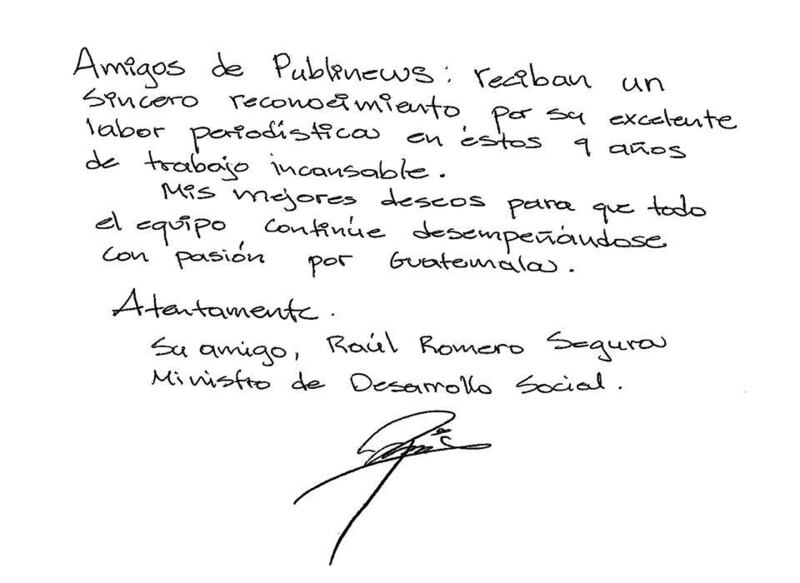 Amigos de Publinews: reciban un
sincero reconocimiento por su excelente
labor periodística en éstos 9 años
de trabajo incansable.
Mis mejores deseos para que todo
el equipo continúe desempeñándose
con pasión por Guatemala.
Atentamente.
Su amigo, Raúl Romero Segura
Ministro de Desarrollo Social.